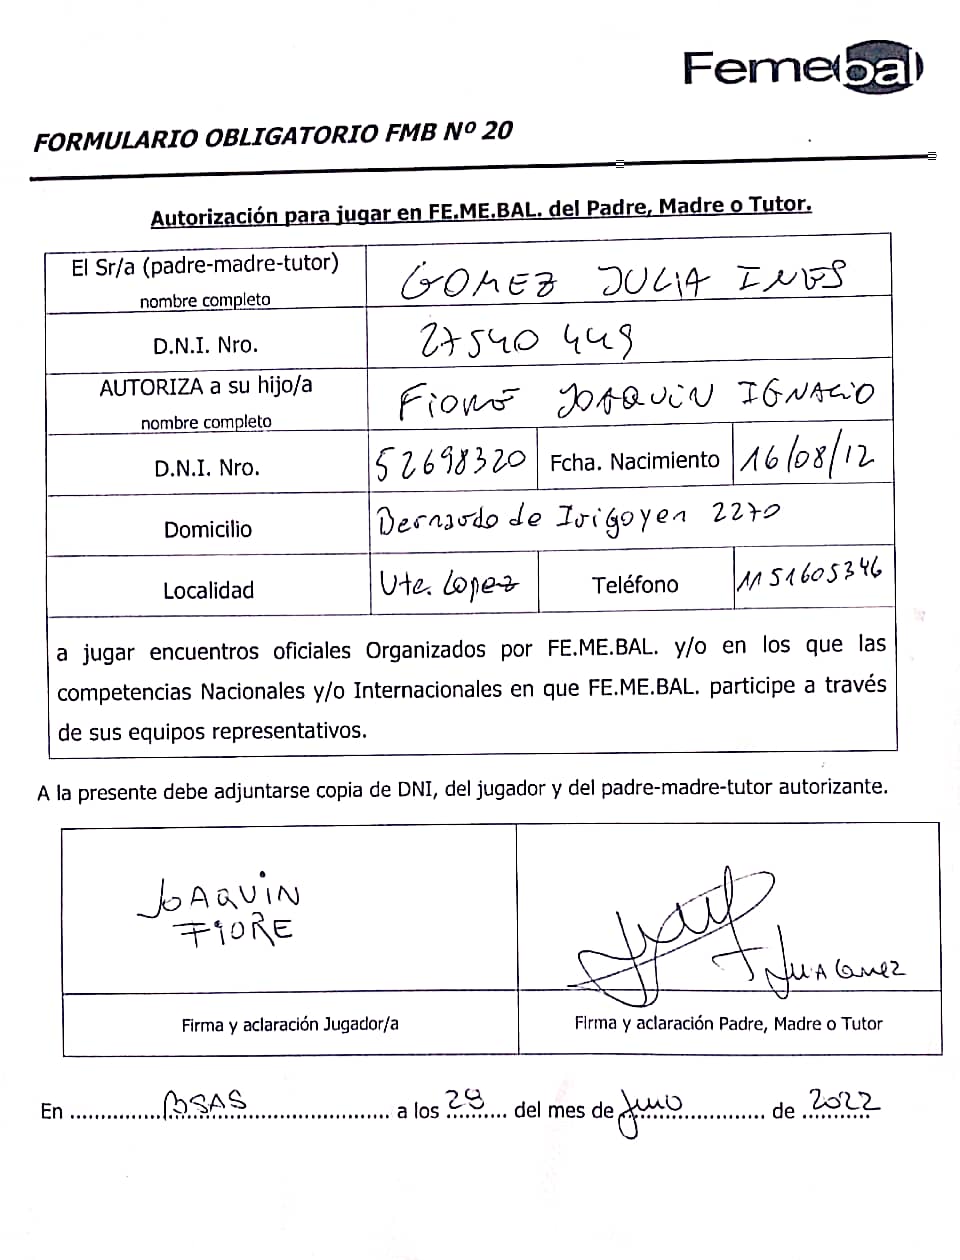 Femebal
FORMULARIO OBLIGATORIO FMB Nº 20
Autorización para jugar en FE.ME.BAL. del Padre, Madre o Tutor.
El Sr/a (padre-madre-tutor) nombre completo GOMEZ JULIA INES
D.N.I. Nro. 27540 449
AUTORIZA a su hijo/a nombre completo FIORE JOAQUIN IGNACIO
D.N.I. Nro. 52698320 Fcha. Nacimiento 16/08/12
Domicilio Bernardo de Irigoyen 2270
Localidad Vte. Lopez Teléfono 1151605346
a jugar encuentros oficiales Organizados por FE.ME.BAL. y/o en los que las
competencias Nacionales y/o Internacionales en que FE.ME.BAL. participe a través
de sus equipos representativos.
A la presente debe adjuntarse copia de DNI, del jugador y del padre-madre-tutor autorizante.
JOAQUIN
FIORE
JULIA Gomez
Firma y aclaración Jugador/a Firma y aclaración Padre, Madre o Tutor
En BSAS a los 29 del mes de Junio de 2022